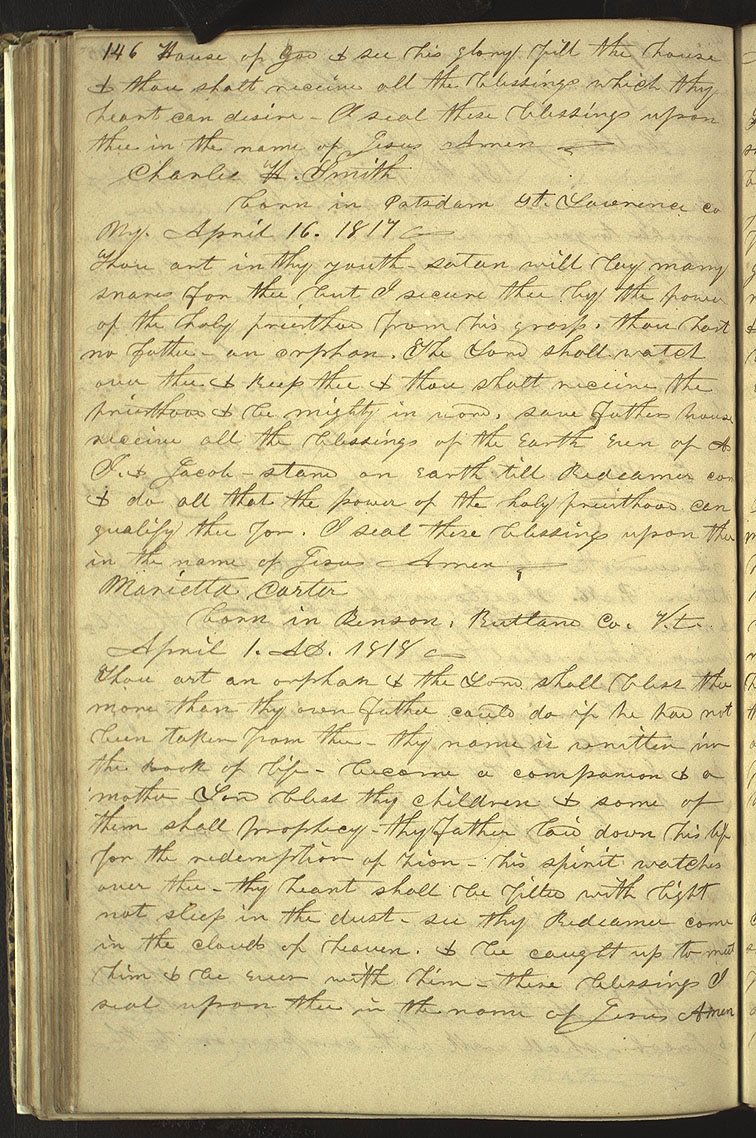 146 House of God & see his glory fill the house
& thou shalt receive all the blessings which thy
heart can desire - I seal these blessings upon
thee in the name of Jesus Amen
Charles H. Smith
born in Potsdam St. Lawrence co
Ny. April 16. 1817
Thou art in thy youth - satan will lay many
snares for thee but I secure thee by the power
of the holy priesthood from his grasp. thou hast
no father - an orphan. The Lord shall watch
over thee & keep thee & thou shalt receive the
priesthood & be mighty in word, save fathers house
receive all the blessings of the Earth Even of A
I. & Jacob - stand on Earth till Redeemer com
& do all that the power of the holy priesthood can
qualify thee for. I seal these blessings upon thee
in the name of Jesus Amen
Marietta Carter
born in Benson, Rutland Co. V.t.
April 1. AD. 1818
Thou art an orphan & the Lord shall bless thee
more than thy own father could do if he had not
been taken from thee - thy name is written in
the book of life - become a companion & a
mother Lord bless thy children & some of
them shall prophecy - thy father laid down his life
for the redemption of Zion - his spirit watches
over thee - thy heart shall be filled with light
not sleep in the dust - see thy Redeemer come
in the clouds of heaven. & be caught up to meet
him & be ever with him - these blessings I
seal upon thee in the name of Jesus Amen